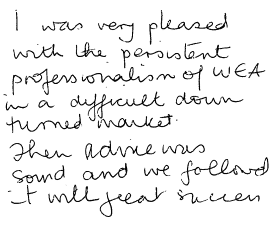 I was very pleased
with the persistent
professionalism of WEA
in a difficult down
turned market.
Their advice was
sound and we followed
it with great success